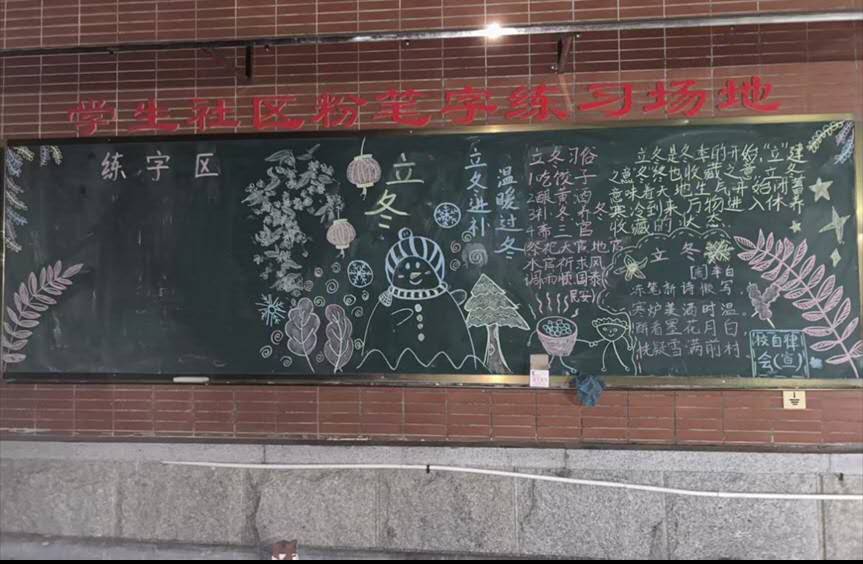 学生社区粉笔字练习场地
练字区
立冬
立冬进补
温暖过冬
立冬习俗
1.吃饺子
2.酿黄酒
3.补冬养冬
4.祭三官
祭祀天官地官
水官祈求风
调雨顺国泰
民安)
立冬是冬季的开始,“立”建
之意;冬终也收藏之意;立冬
意味着天地生气开始闭蓄
寒冷到来 万物进入休养
收藏的状态
立冬
[唐]李白
冻笔新诗懒写.
寒炉美酒时温.
醉看墨花月白.
恍疑雪满前村.
校自律
会(宣)